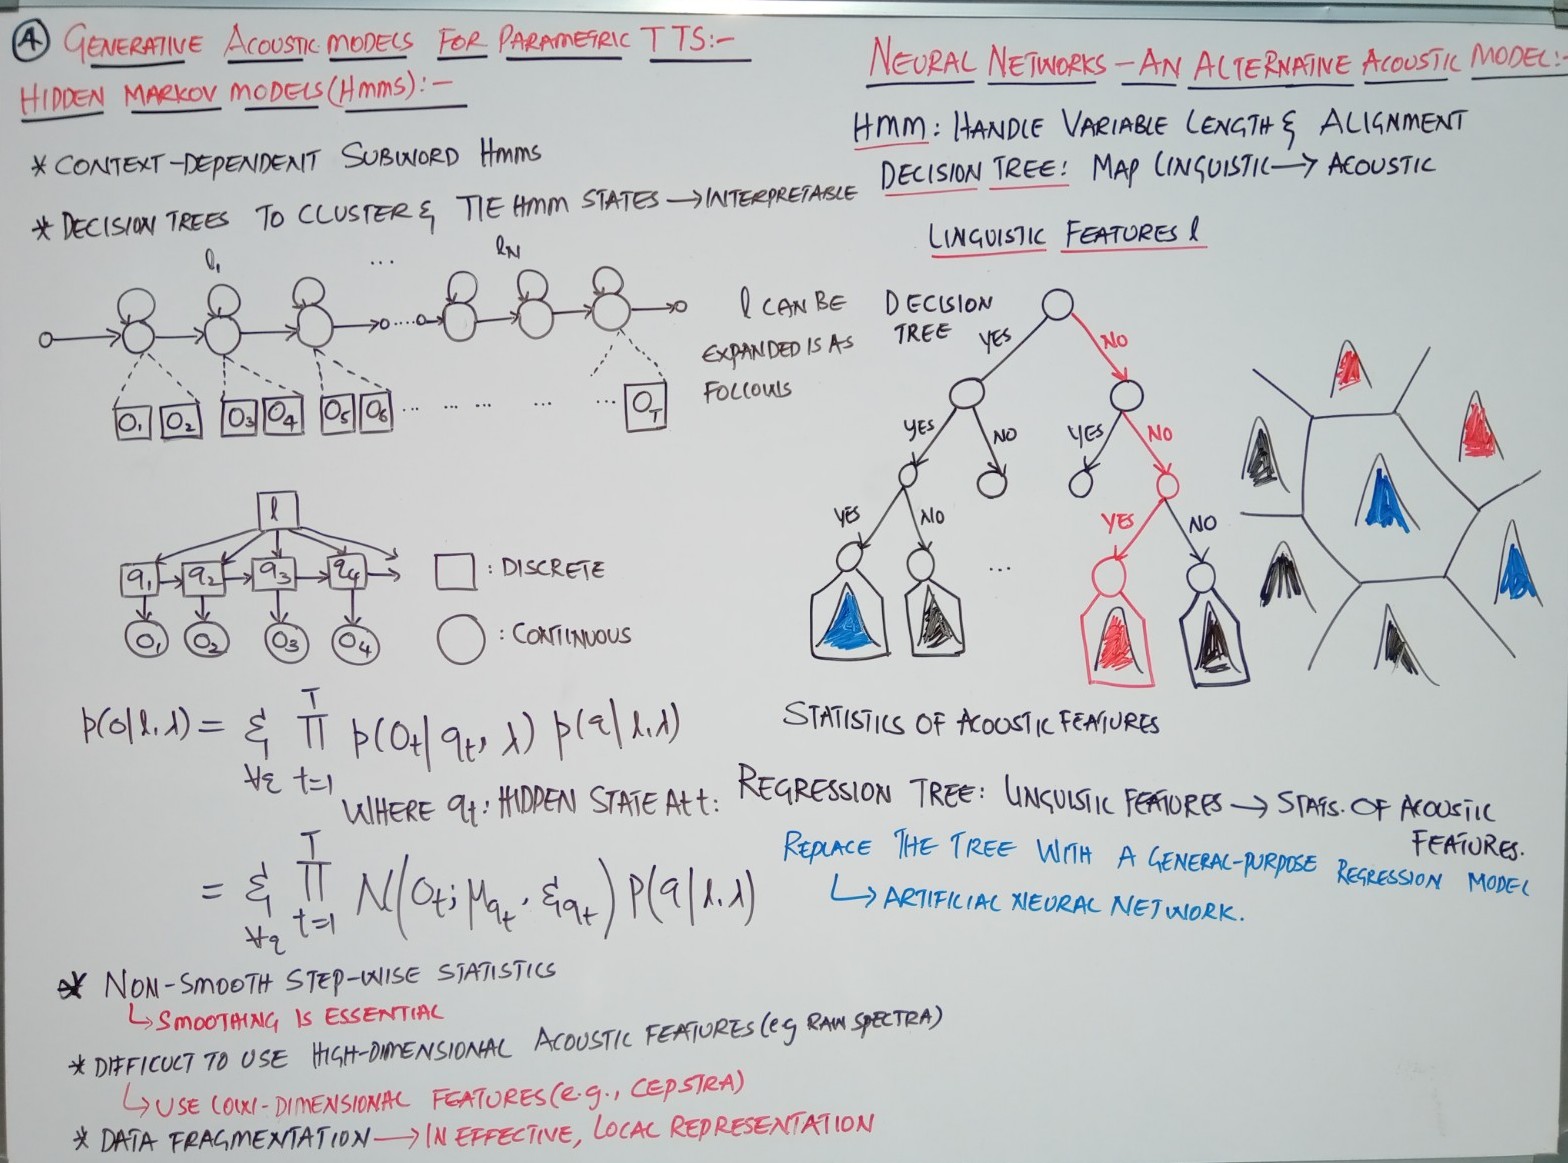 A GENERATIVE ACOUSTIC MODELS FOR PARAMETRIC TTS:-
HIDDEN MARKOV MODELS (HMMs):-
* CONTEXT-DEPENDENT SUBWORD HMMs
* DECISION TREES TO CLUSTER & TIE HMM STATES → INTERPRETABLE
l1 ... lN
l CAN BE
EXPANDED IS AS
FOLLOWS
O1 O2 O3 O4 O5 O6 ... ... ... ... ... OT
l
q1 q2 q3 q4
□ : DISCRETE
O1 O2 O3 O4
○ : CONTINUOUS
p(o|l,λ) = Σ∀q Π(t=1 to T) p(Ot|qt, λ) p(q|l,λ)
WHERE qt: HIDDEN STATE At t:
= Σ∀q Π(t=1 to T) N(Ot; μqt, Σqt) P(q|l,λ)
* NON-SMOOTH STEP-WISE STATISTICS
↳ SMOOTHING IS ESSENTIAL
* DIFFICULT TO USE HIGH-DIMENSIONAL ACOUSTIC FEATURES (eg RAW SPECTRA)
↳ USE LOW-DIMENSIONAL FEATURES (e.g., CEPSTRA)
* DATA FRAGMENTATION → INEFFECTIVE, LOCAL REPRESENTATION
NEURAL NETWORKS - AN ALTERNATIVE ACOUSTIC MODEL:-
HMM: HANDLE VARIABLE LENGTH & ALIGNMENT
DECISION TREE: MAP LINGUISTIC → ACOUSTIC
LINGUISTIC FEATURES l
DECISION
TREE
YES NO
YES NO YES NO
YES NO YES NO
...
STATISTICS OF ACOUSTIC FEATURES
REGRESSION TREE: LINGUISTIC FEATURES → STATS. OF ACOUSTIC
FEATURES.
REPLACE THE TREE WITH A GENERAL-PURPOSE REGRESSION MODEL
↳ ARTIFICIAL NEURAL NETWORK.